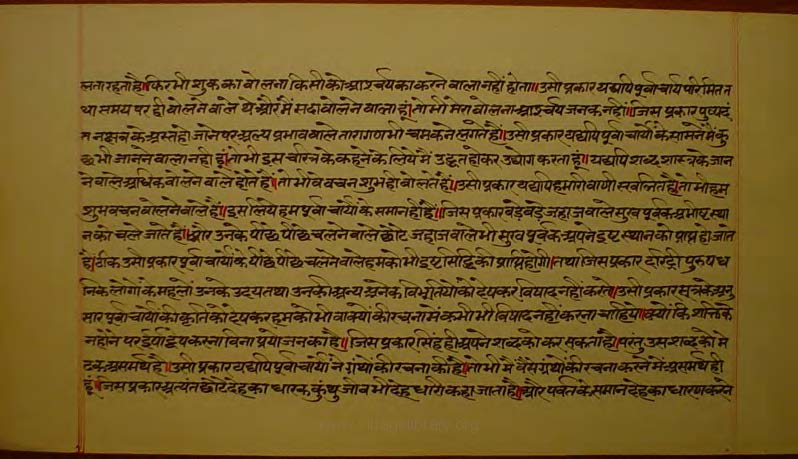 लता रहता है॥ फिर भी शुक का बोलना किसी को आश्चर्य का करने वाला नहीं होता॥ उसी प्रकार यद्यपि पूर्वाचार्य परिमित त
था समय पर ही बोलने वाले थे और मैं सदा बोलने वाला हूं॥ तो भी मेरा बोलना आश्चर्य जनक नहीं॥ जिस प्रकार पुष्पदं
त नक्षत्र के अस्त हो जाने पर अल्प प्रभाव वाले तारागण भी चमकने लगते हैं॥ उसी प्रकार यद्यपि पूर्वाचार्यों के सामने मैं कु
छ भी जानने वाला नहीं हूं॥ तो भी इस चरित्र के कहने के लिये मैं उद्धत होकर उद्योग करता हूं॥ यद्यपि शब्द शास्त्र के जान
ने वाले अधिक बोलने वाले होते हैं॥ तो भी वे वचन शुभ ही बोलते हैं॥ उसी प्रकार यद्यपि हमारी वाणी स्खलित है॥ तो भी हम
शुभ वचन बोलने वाले हैं॥ इसलिये हम पूर्वाचार्यों के समान ही हैं॥ जिस प्रकार बड़े बड़े जहाज वाले सुख पूर्वक अभीष्ट स्था
न को चले जाते हैं॥ और उनके पीछे पीछे चलने वाले छोटे जहाज वाले भी सुख पूर्वक अपने इष्ट स्थान को प्राप्त हो जाते
हैं॥ ठीक उसी प्रकार पूर्वाचार्यों के पीछे पीछे चलने वाले हमको भी इष्ट सिद्धि की प्राप्ति होगी॥ तथा जिस प्रकार दरिद्री पुरुष ध
निक लोगों के महलों उनके उदय तथा उनकी अन्य अनेक विभूतियों को देषकर विषाद नहीं करते॥ उसी प्रकार सूत्र के अनु
सार पूर्वाचार्यों की कृति को देषकर हमको भी वाक्यों की रचना में कभी भी विषाद नहीं करना चाहिये॥ क्योंकि शक्ति के
न होने पर ईर्षा द्वेष करना विना प्रयोजन का है॥ जिस प्रकार सिंह ही अपने शब्द को कर सकता है॥ परंतु उस शब्द को मे
ढक असमर्थ है॥ उसी प्रकार यद्यपि पूर्वाचार्यों ने ग्रंथों की रचना की है॥ तो भी मैं वैसे ग्रंथों की रचना करने में असमर्थ ही
हूं॥ जिस प्रकार अत्यंत छोटे देह का धारक कुंथु जीव भी देह धारी कहा जाता है॥ और पर्वत के समान देह का धारण करने